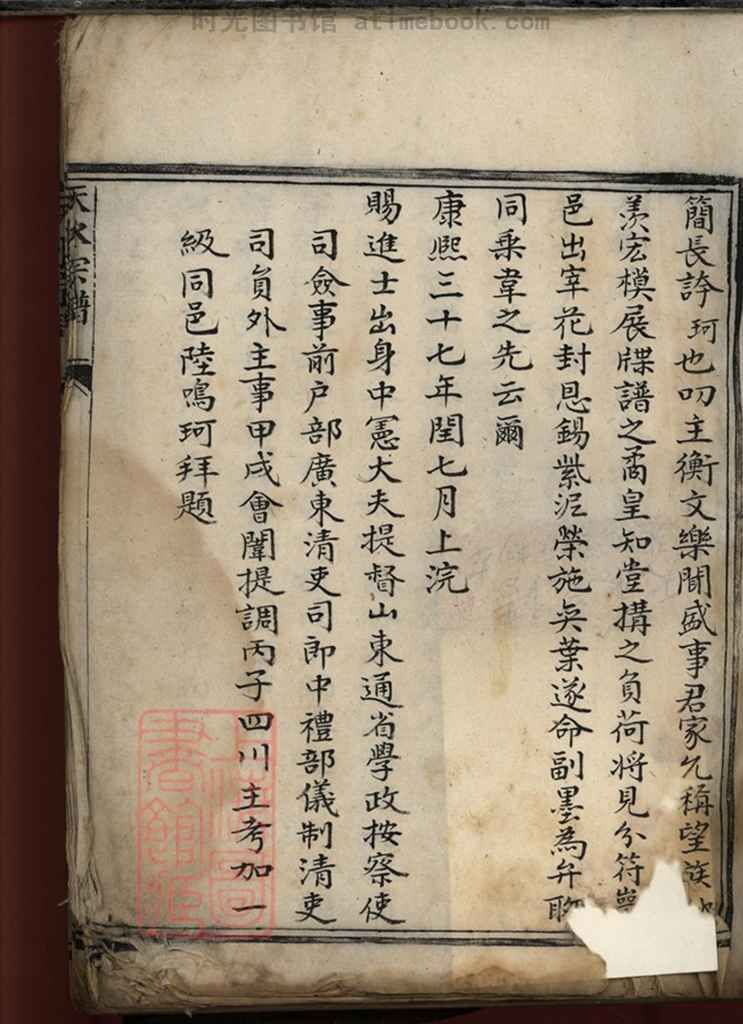 时光图书馆 atimebook.com
簡長誇珂也叨主衡文樂聞盛事君家允稱望族
羨宏模展牒譜之矞皇知堂搆之負荷將見分符
邑出宰花封恩錫紫泥榮施奕葉遂命副墨為弁聊
同乘韋之先云爾
康熙三十七年閏七月上浣
賜進士出身中憲大夫提督山東通省學政按察使
司僉事前户部廣東清吏司郎中禮部儀制清吏
司員外主事甲戌會闈提調丙子四川主考加一
級同邑陸鳴珂拜題
天水宗譜